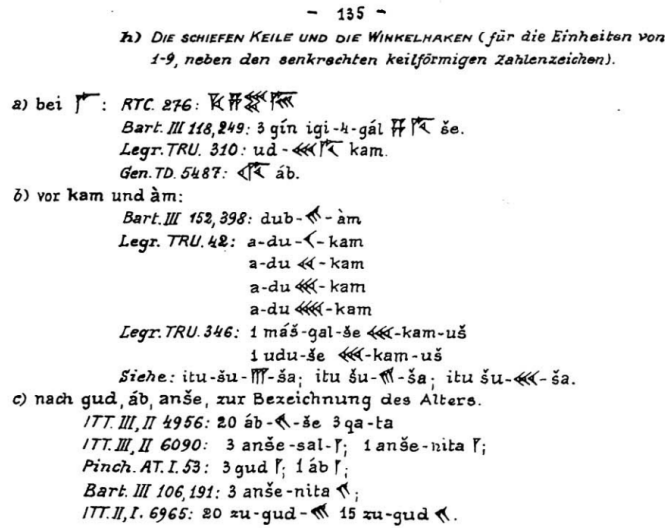 - 135 -
h) DIE SCHIEFEN KEILE UND DIE WINKELHAKEN (für die Einheiten von
1-9, neben den senkrechten keilförmigen Zahlenzeichen).
a) bei :
RTC. 276:
Bart. III 118,249: 3 gín igi-4-gál še.
Legr. TRU. 310: ud- kam.
Gen. TD. 5487: áb.
b) vor kam und àm:
Bart. III 152, 398: dub- -àm
Legr. TRU. 42: a-du- -kam
a-du -kam
a-du -kam
a-du -kam
Legr. TRU. 346: 1 máš-gal-še -kam-uš
1 udu-še -kam-uš
Siehe: itu-šu- -ša; itu šu- -ša; itu šu- -ša.
c) nach gud, áb, anše, zur Bezeichnung des Alters.
ITT. III, II 4956: 20 áb- -še 3 qa-ta
ITT. III, II 6090: 3 anše-sal- ; 1 anše-nita ;
Pinch. AT. I. 53: 3 gud ; 1 áb ;
Bart. III 106, 191: 3 anše-nita ;
ITT. II, I. 6965: 20 zu-gud- 15 zu-gud .